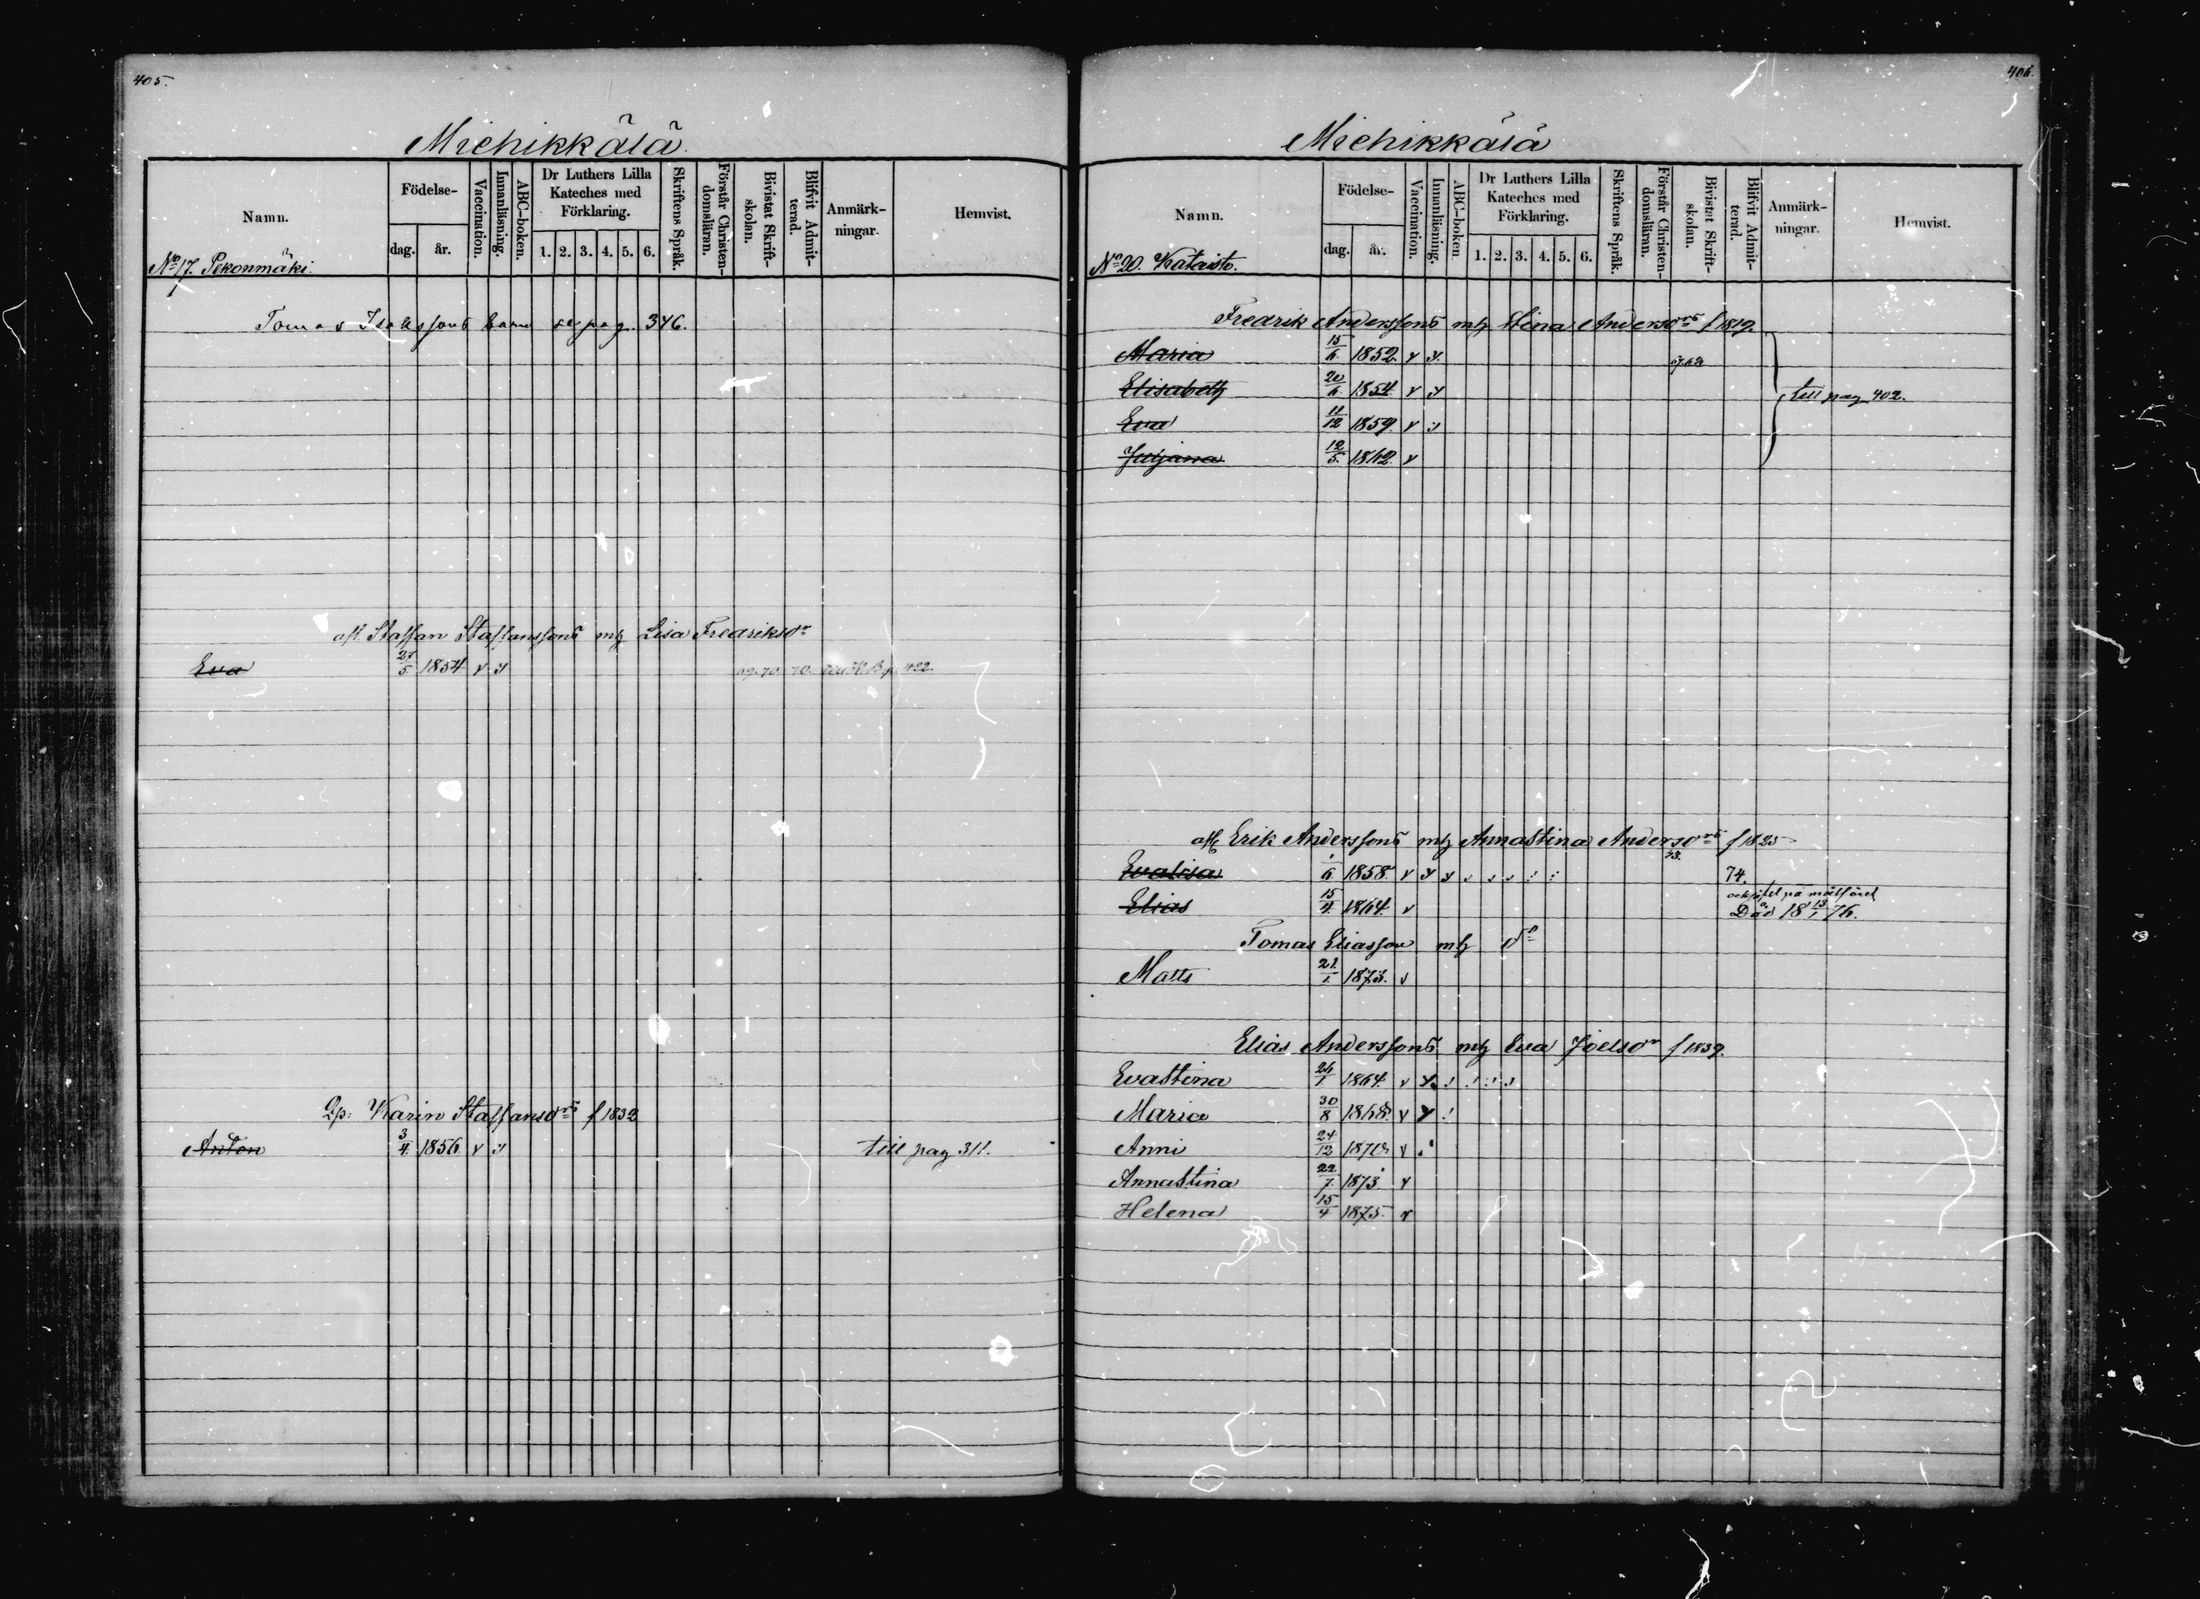 405.
Michikkälä.
Namn.
Födelse-
dag. år.
Vaccination.
Innanläsning.
ABC-boken.
Dr Luthers Lilla
Kateches med
Förklaring.
1. 2. 3. 4. 5. 6.
Skriftens Språk.
Förstår Christen-
domsläran.
Bivistat Skrift-
skolan.
Blifvit Admit-
terad.
Anmärk-
ningar.
Hemvist.
No 17. Pekonmäki.
Tomas Isakssons barn se pag. 346.
afl. Staffan Staffanssons mh Lisa Fredriksdr
Eva 27/5 1854 v v 69.70. 70. till K.B.p. 422.
Qp: Karin Staffansdrs f 1832
Anton 3/4 1856 v v till pag 311.
406.
Michikkälä
Namn.
Födelse-
dag. år.
Vaccination.
Innanläsning.
ABC-boken.
Dr Luthers Lilla
Kateches med
Förklaring.
1. 2. 3. 4. 5. 6.
Skriftens Språk.
Förstår Christen-
domsläran.
Bivistat Skrift-
skolan.
Blifvit Admit-
terad.
Anmärk-
ningar.
Hemvist.
No 20. Kataisto.
Fredrik Anderssons mh Stina Andersdrs f 1819.
Maria 15/6 1852. v v
Elisabeth 20/6 1854. v v till pag 402.
Eva 11/12 1859. v v
Juljana 12/5. 1862. v
afl Erik Anderssons mh Annastina Andersdrs f 1825
73.
Evalisa 1/6 1858. v v v 74.
Elias 15/4. 1864. v Död 18 13/1 76.
Tomas Eliasson mh do
Matts 21/1. 1873. v
Elias Anderssons mh Eva Joelsdr f 1839.
Evastina 26/1 1864. v v
Maria 30/8 1868. v v
Anni 24/12 1870 v
Annastina 22/7. 1873. v
Helena 15/4 1875. v